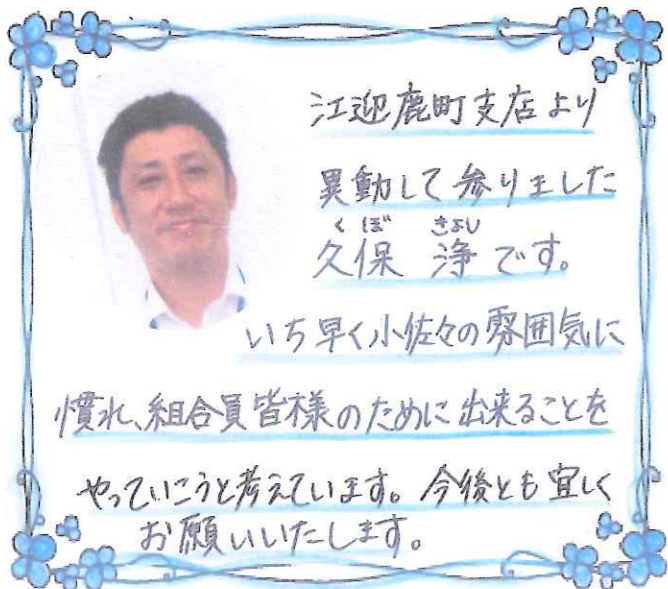 江迎鹿町支店より
異動して参りました
くぼ きよし
久保 浄です。
いち早く小佐々の雰囲気に
慣れ、組合員皆様のために出来ることを
やっていこうと考えています。今後とも宜しく
お願いいたします。